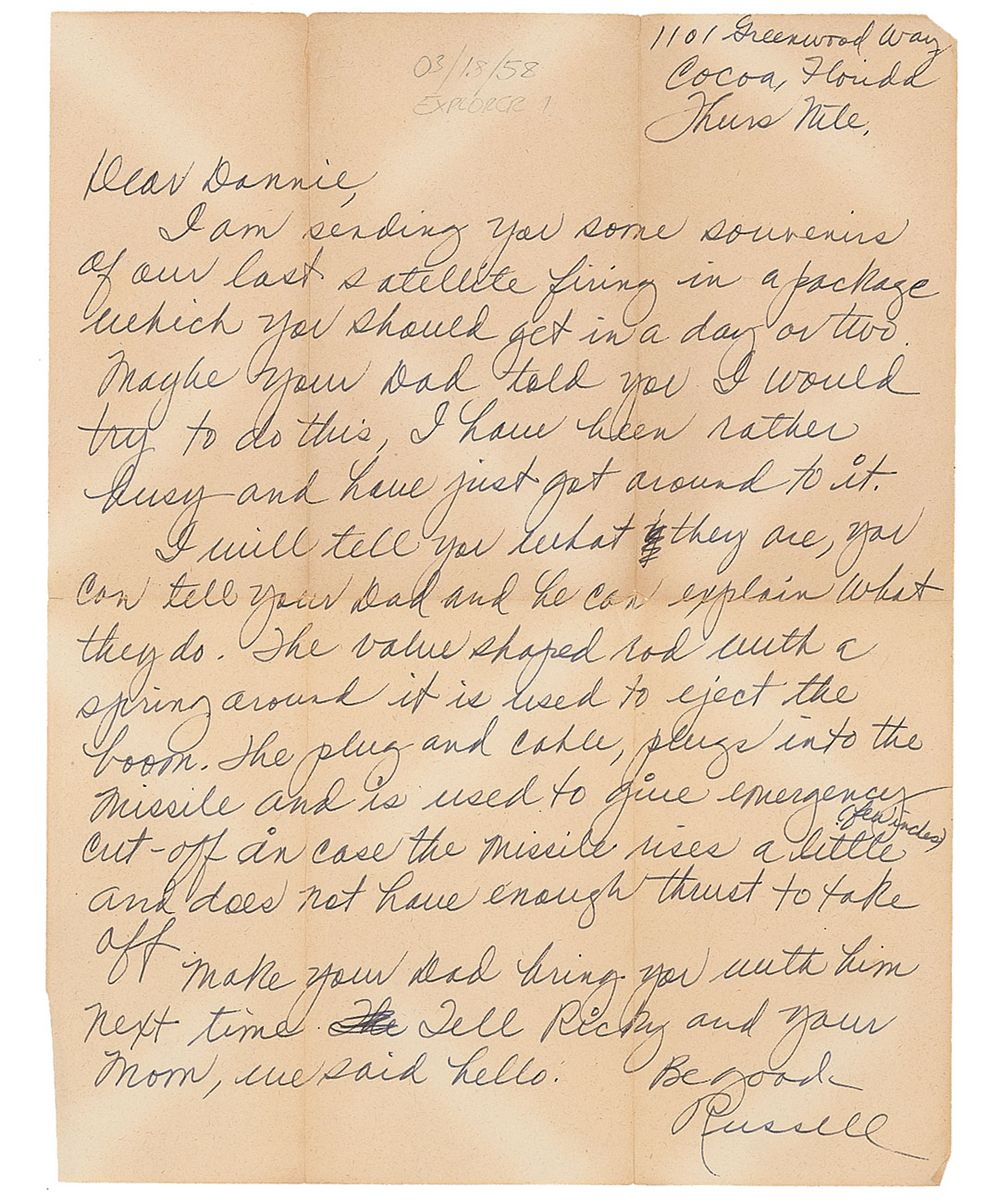 1101 Greenwood Way
Cocoa, Florida
Thurs Nite,
03/18/58
EXPLORER 1
Dear Donnie,
I am sending you some souvenirs
of our last satellite firing in a package
which you should get in a day or two.
Maybe your Dad told you I would
try to do this, I have been rather
busy and have just got around to it.
I will tell you what they are, you
can tell your Dad and he can explain what
they do. The value shaped rod with a
spring around it is used to eject the
boom. The plug and cable, plugs into the
missile and is used to give emergency
(few inches)
cut-off in case the missile rises a little
and does not have enough thrust to take
off
Make your Dad bring you with him
next time. Tell Ricky and your
Mom, we said hello.
Be good
Russell